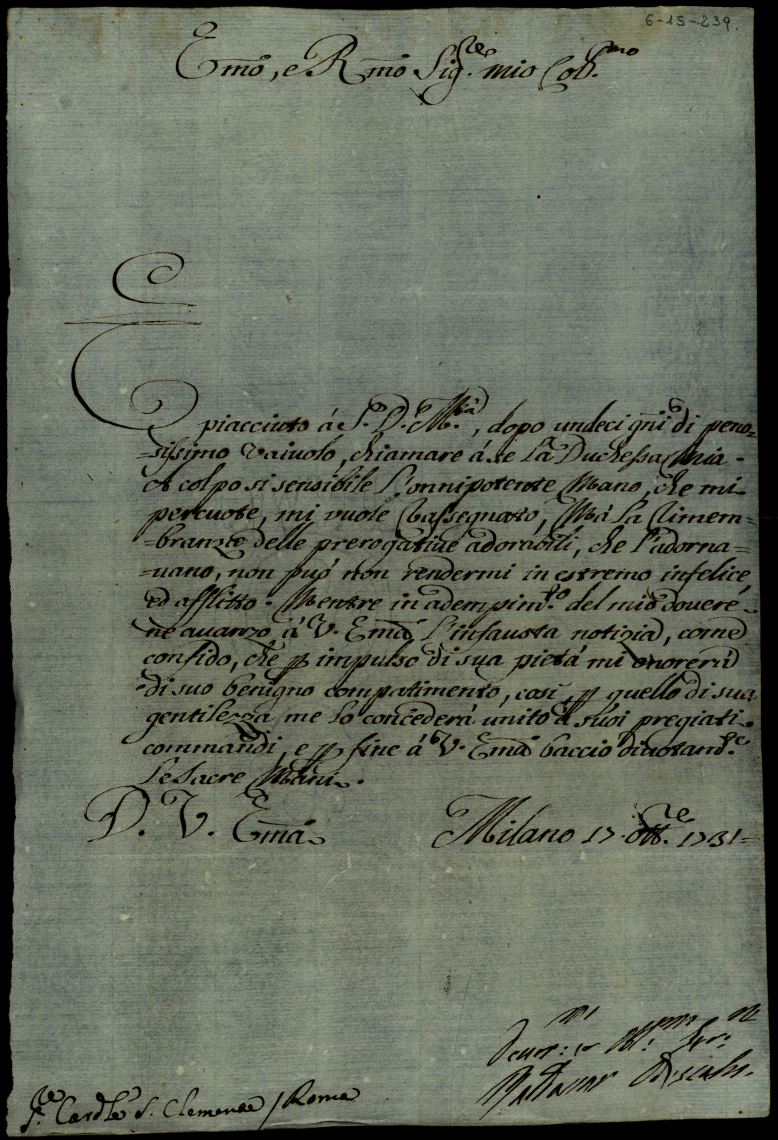 6-15-239.
Emo, e Rmo Sig.re mio Col.mo
È
piacciuto á S. D. M.tà, dopo undeci gñi di peno=
=sissimo vaivolo, chiamare á se la Duchessa mia.
Al colpo si sensibile l'onnipotente Mano, che mi
percuote, mi vuole rassegnato, Má la rimem=
=branza delle prerogative adorabili, che l'adorna=
=uano, non può non rendermi in estremo infelice,
ed afflitto. Mentre in adempim.to del mio douere
ne auanzo á V. Emã l'infausta notizia, come
confido, che p impulso di sua pietá mi onorerá
di suo benigno compatimento, così p quello di sua
gentilezza me lo concederá unito á suoi pregiati
commandi, e p fine á V. Emã baccio diuotam.te
le sacre Mani.
D. V. Emã Milano 17 ott.re 1731=
Baldassar
S.re Card.le S. Clemente / Roma